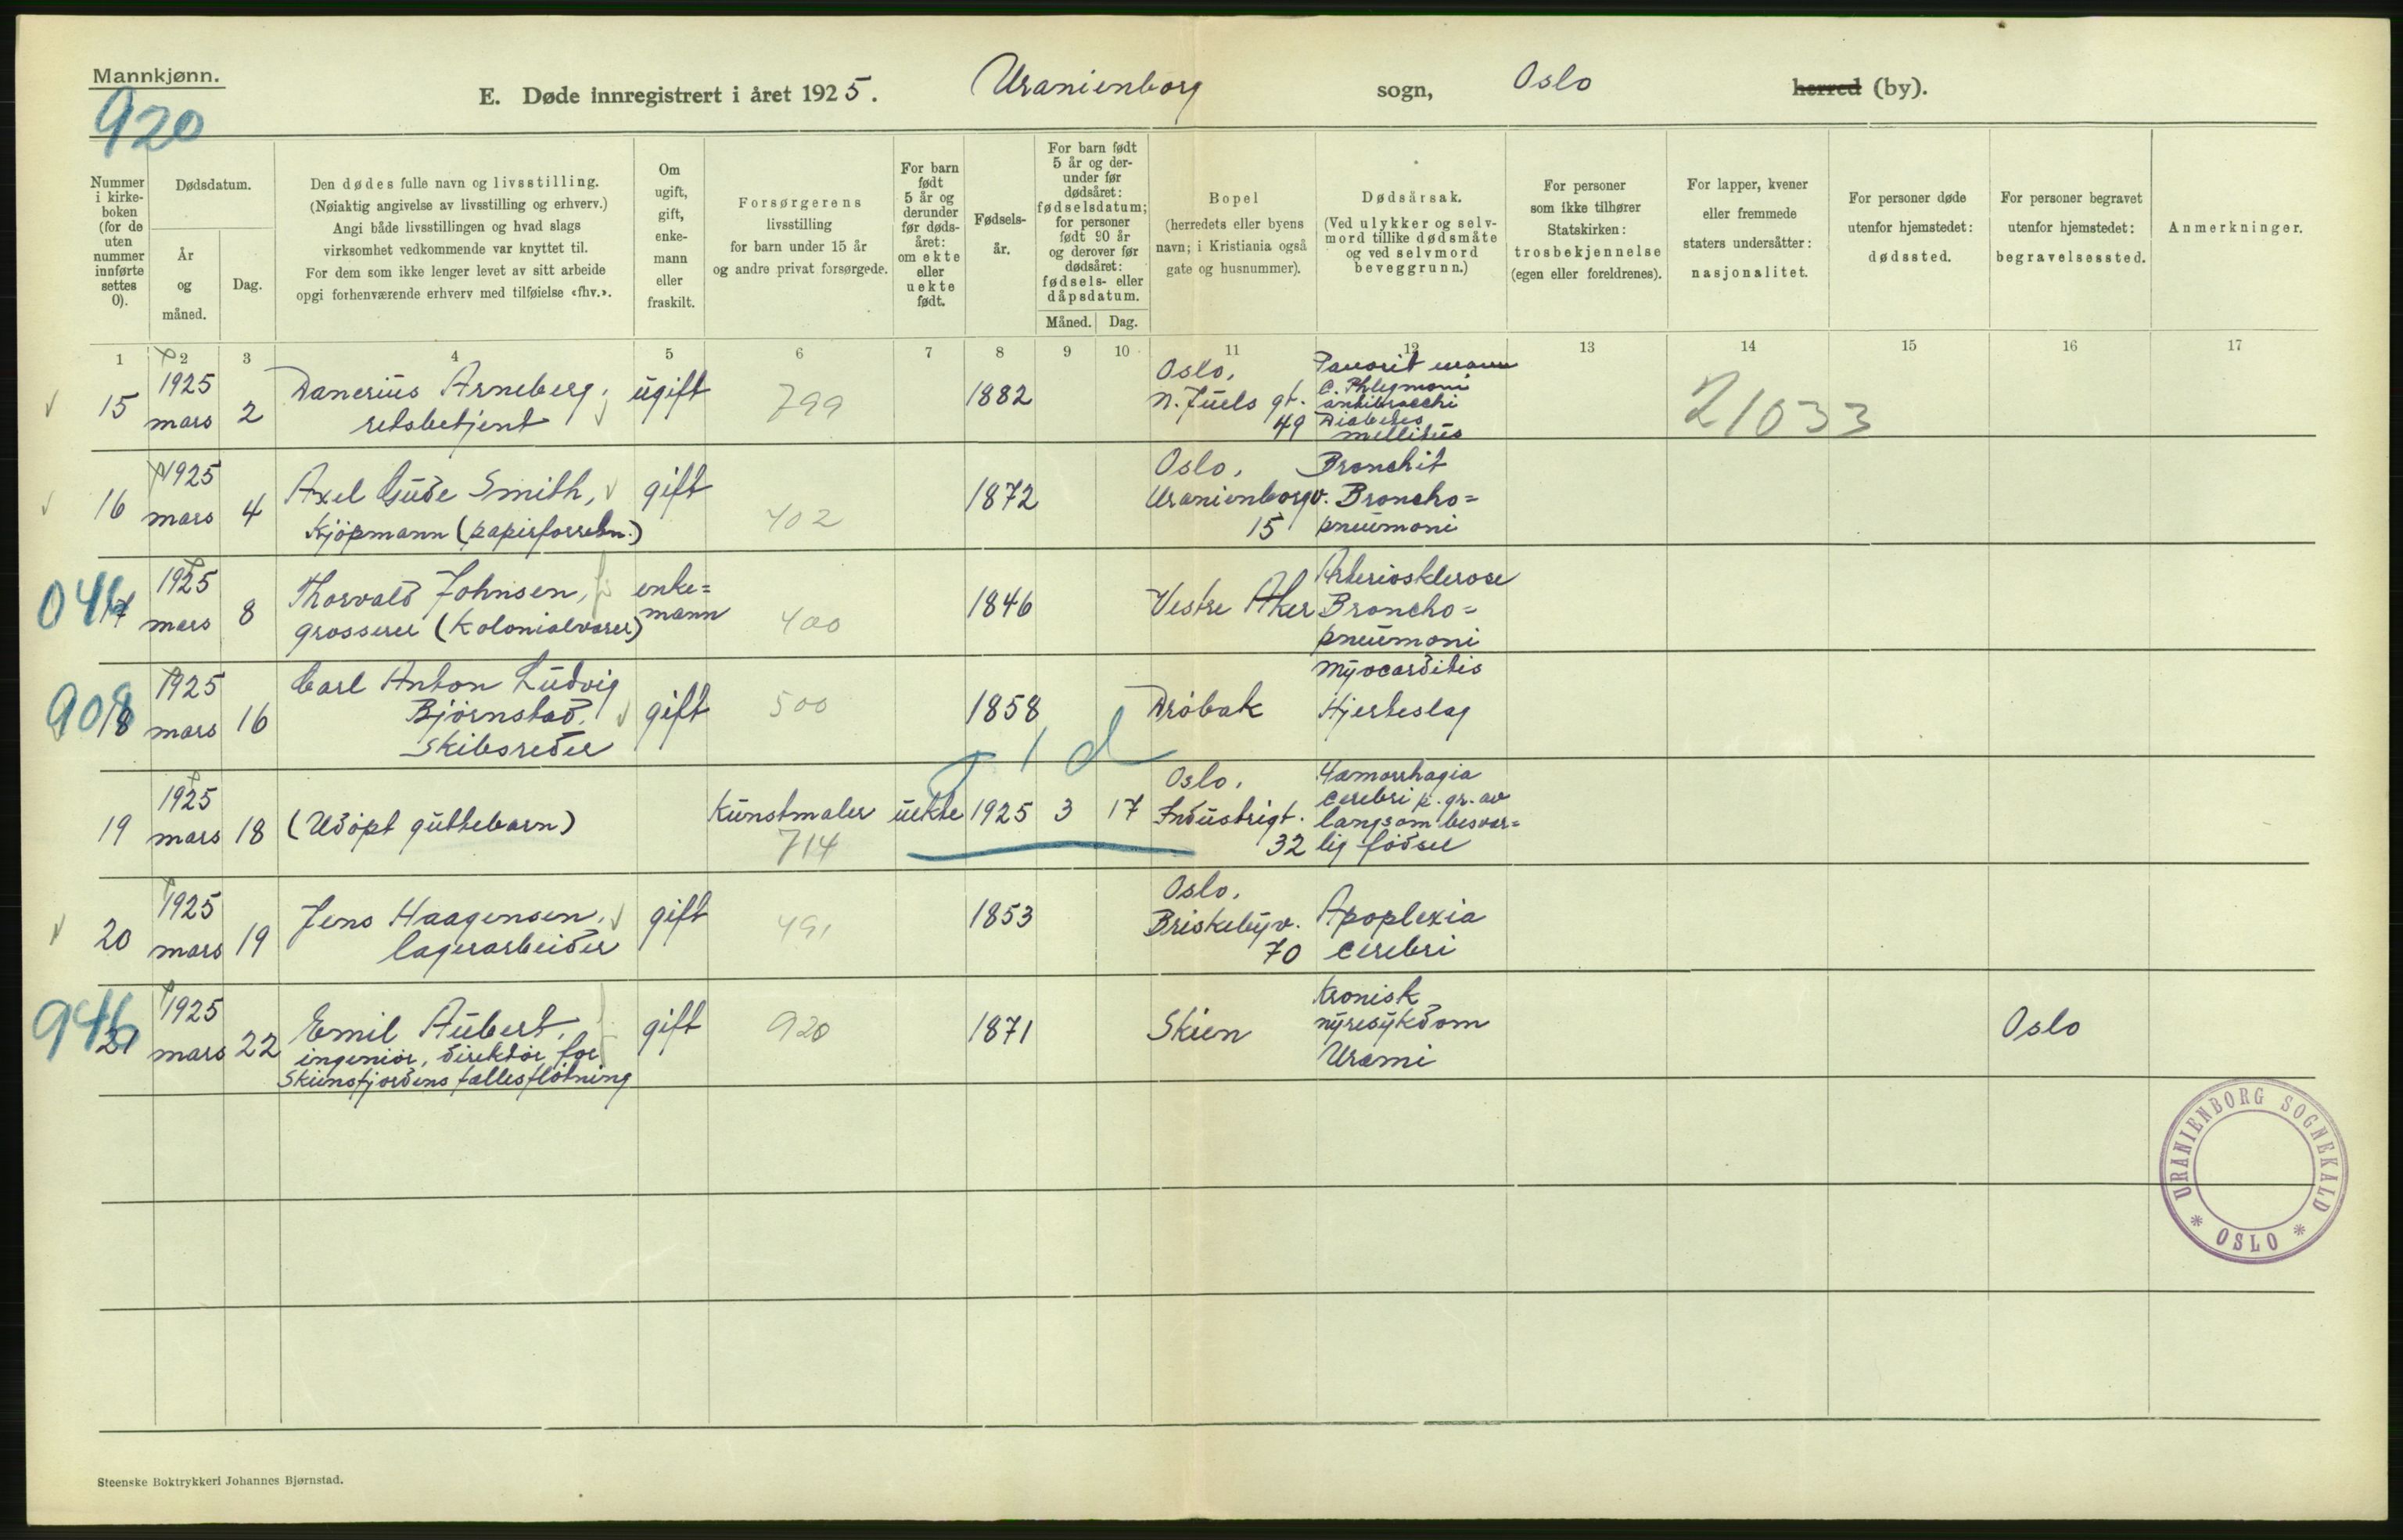 Mannkjønn.
920
E. Døde innregistrert i året 1925. Uranienborg sogn, Oslo herred (by).
Nummer i kirke-boken (for de uten nummer innførte settes 0).
Dødsdatum.
År og måned.
Dag.
Den dødes fulle navn og livsstilling.
(Nøiaktig angivelse av livsstilling og erhverv.)
Angi både livsstillingen og hvad slags
virksomhet vedkommende var knyttet til.
For dem som ikke lenger levet av sitt arbeide
opgi forhenværende erhverv med tilføielse «fhv.».
Om ugift, gift, enke-mann eller fraskilt.
Forsørgerens
livsstilling
for barn under 15 år
og andre privat forsørgede.
For barn født 5 år og derunder før døds-året: om ekte eller uekte født.
Fødsels-år.
For barn født 5 år og der-under før dødsåret: fødselsdatum; for personer født 90 år og derover før dødsåret: fødsels- eller dåpsdatum.
Måned. Dag.
Bopel
(herredets eller byens
navn; i Kristiania også
gate og husnummer).
Dødsårsak.
(Ved ulykker og selv-
mord tillike dødsmåte
og ved selvmord
beveggrunn.)
For personer
som ikke tilhører
Statskirken:
trosbekjennelse
(egen eller foreldrenes).
For lapper, kvener
eller fremmede
staters undersåtter:
nasjonalitet.
For personer døde
utenfor hjemstedet:
dødssted.
For personer begravet
utenfor hjemstedet:
begravelsessted.
Anmerkninger.
1 2 3 4 5 6 7 8 9 10 11 12 13 14 15 16 17
15 1925 mars 2
Danerius Arneberg,
retsbetjent
ugift 799 1882
Oslo,
N. Juels gt.
49
c. Phlegmoni
antibracchi
Diabetes
mellitus
21033
16 1925 mars 4
Axel Gude Smith,
Kjøpmann (papirforretn.)
gift 702 1872
Oslo,
Uranienborgv.
15
Bronchit
Broncho=
pneumoni
17 1925 mars 8
Thorvald Johnsen,
grosserer (Kolonialvarer)
enke=
mann
400 1846
Vestre Aker
Arteriosklerose
Broncho=
pneumoni
908
18 1925 mars 16
Carl Anton Ludvig
Bjørnstad,
Skibsreder
gift 500 1858
Drøbak
Myocarditis
Hjerteslag
1 d
19 1925 mars 18
(Udøpt guttebarn)
Kunstmaler
714
uekte 1925 3 17
Oslo,
Industrigt.
32
Hæmorrhagia
cerebri p. gr. av
langsom besvær=
lig fødsel
20 1925 mars 19
Jens Haagensen,
lagerarbeider
gift 491 1853
Oslo,
Briskebyv.
70
Apoplexia
cerebri
946
21 1925 mars 22
Emil Aubert,
ingeniør, direktør for
Skiensfjordens fællesfløtning
gift 920 1871
Skien
Kronisk
nyresykdom
Uræmi
Oslo
URANIENBORG SOGNEKALD * OSLO *
Steenske Boktrykkeri Johannes Bjørnstad.